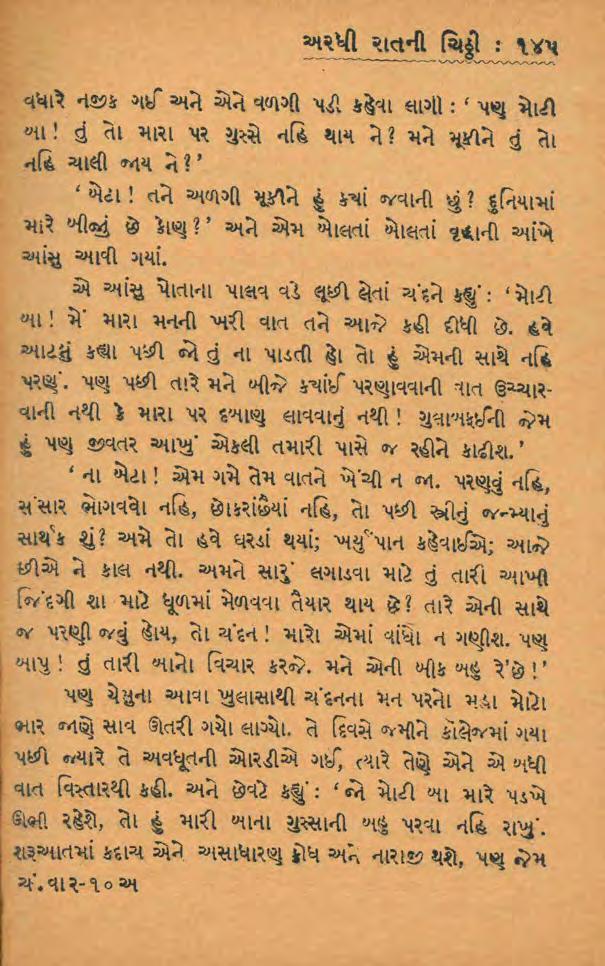 અરધી રાતની ચિઠ્ઠી : ૧૪૫
વધારે નજીક ગઈ અને એને વળગી પડી કહેવા લાગી : ‘ પણ મોટી
બા ! તું તો મારા પર ગુસ્સે નહિ થાય ને ? મને મૂકીને તું તો
નહિ ચાલી જાય ને ?’
‘ બેટા ! તને અળગી મૂકીને હું કયાં જવાની છું ? દુનિયામાં
મારે બીજું છે કોણ ?’ અને એમ બોલતાં બોલતાં વૃદ્ધાની આંખે
આંસુ આવી ગયાં.
એ આંસુ પોતાના પાલવ વડે લૂછી લેતાં ચંદને કહ્યું : ‘ મોટી
બા ! મેં મારા મનની ખરી વાત તને આજે કહી દીધી છે. હવે
આટલું કહ્યા પછી જો તું ના પાડતી હો તો હું એમની સાથે નહિ
પરણું. પણ પછી તારે મને બીજે કયાંઈ પરણાવવાની વાત ઉચ્ચાર-
વાની નથી કે મારા પર દબાણ લાવવાનું નથી ! ગુલાબફઈની જેમ
હું પણ જીવતર આખું એકલી તમારી પાસે જ રહીને કાઢીશ. ’
‘ ના બેટા ! એમ ગમે તેમ વાતને ખેંચી ન જા. પરણવું નહિ,
સંસાર ભોગવવો નહિ, છોકરાંછૈયાં નહિ, તો પછી સ્ત્રીનું જન્મ્યાનું
સાર્થક શું ? અમે તો હવે ઘરડાં થયાં; ખર્યું પાન કહેવાઈએ; આજે
છીએ ને કાલ નથી. અમને સારું લગાડવા માટે તું તારી આખી
જિંદગી શા માટે ધૂળમાં મેળવવા તૈયાર થાય છે ? તારે એની સાથે
જ પરણી જવું હોય, તો ચંદન ! મારો એમાં વાંધો ન ગણીશ. પણ
બાપુ ! તું તારી બાનો વિચાર કરજે. મને એની બીક બહુ રે’છે !’
પણ ચેમુના આવા ખુલાસાથી ચંદનના મન પરનો મહા મોટો
ભાર જાણે સાવ ઊતરી ગયો લાગ્યો. તે દિવસે જમીને કૉલેજમાં ગયા
પછી જ્યારે તે અવધૂતની ઓરડીએ ગઈ, ત્યારે તેણે એને એ બધી
વાત વિસ્તારથી કહી. અને છેવટે કહ્યું : ‘ જો મોટી બા મારે પડખે
ઊભી રહેશે, તો હું મારી બાના ગુસ્સાની બહુ પરવા નહિ રાખું.
શરૂઆતમાં કદાચ એને અસાધારણ ક્રોધ અને નારાજી થશે, પણ જેમ
ચં.વાર-૧૦ અ